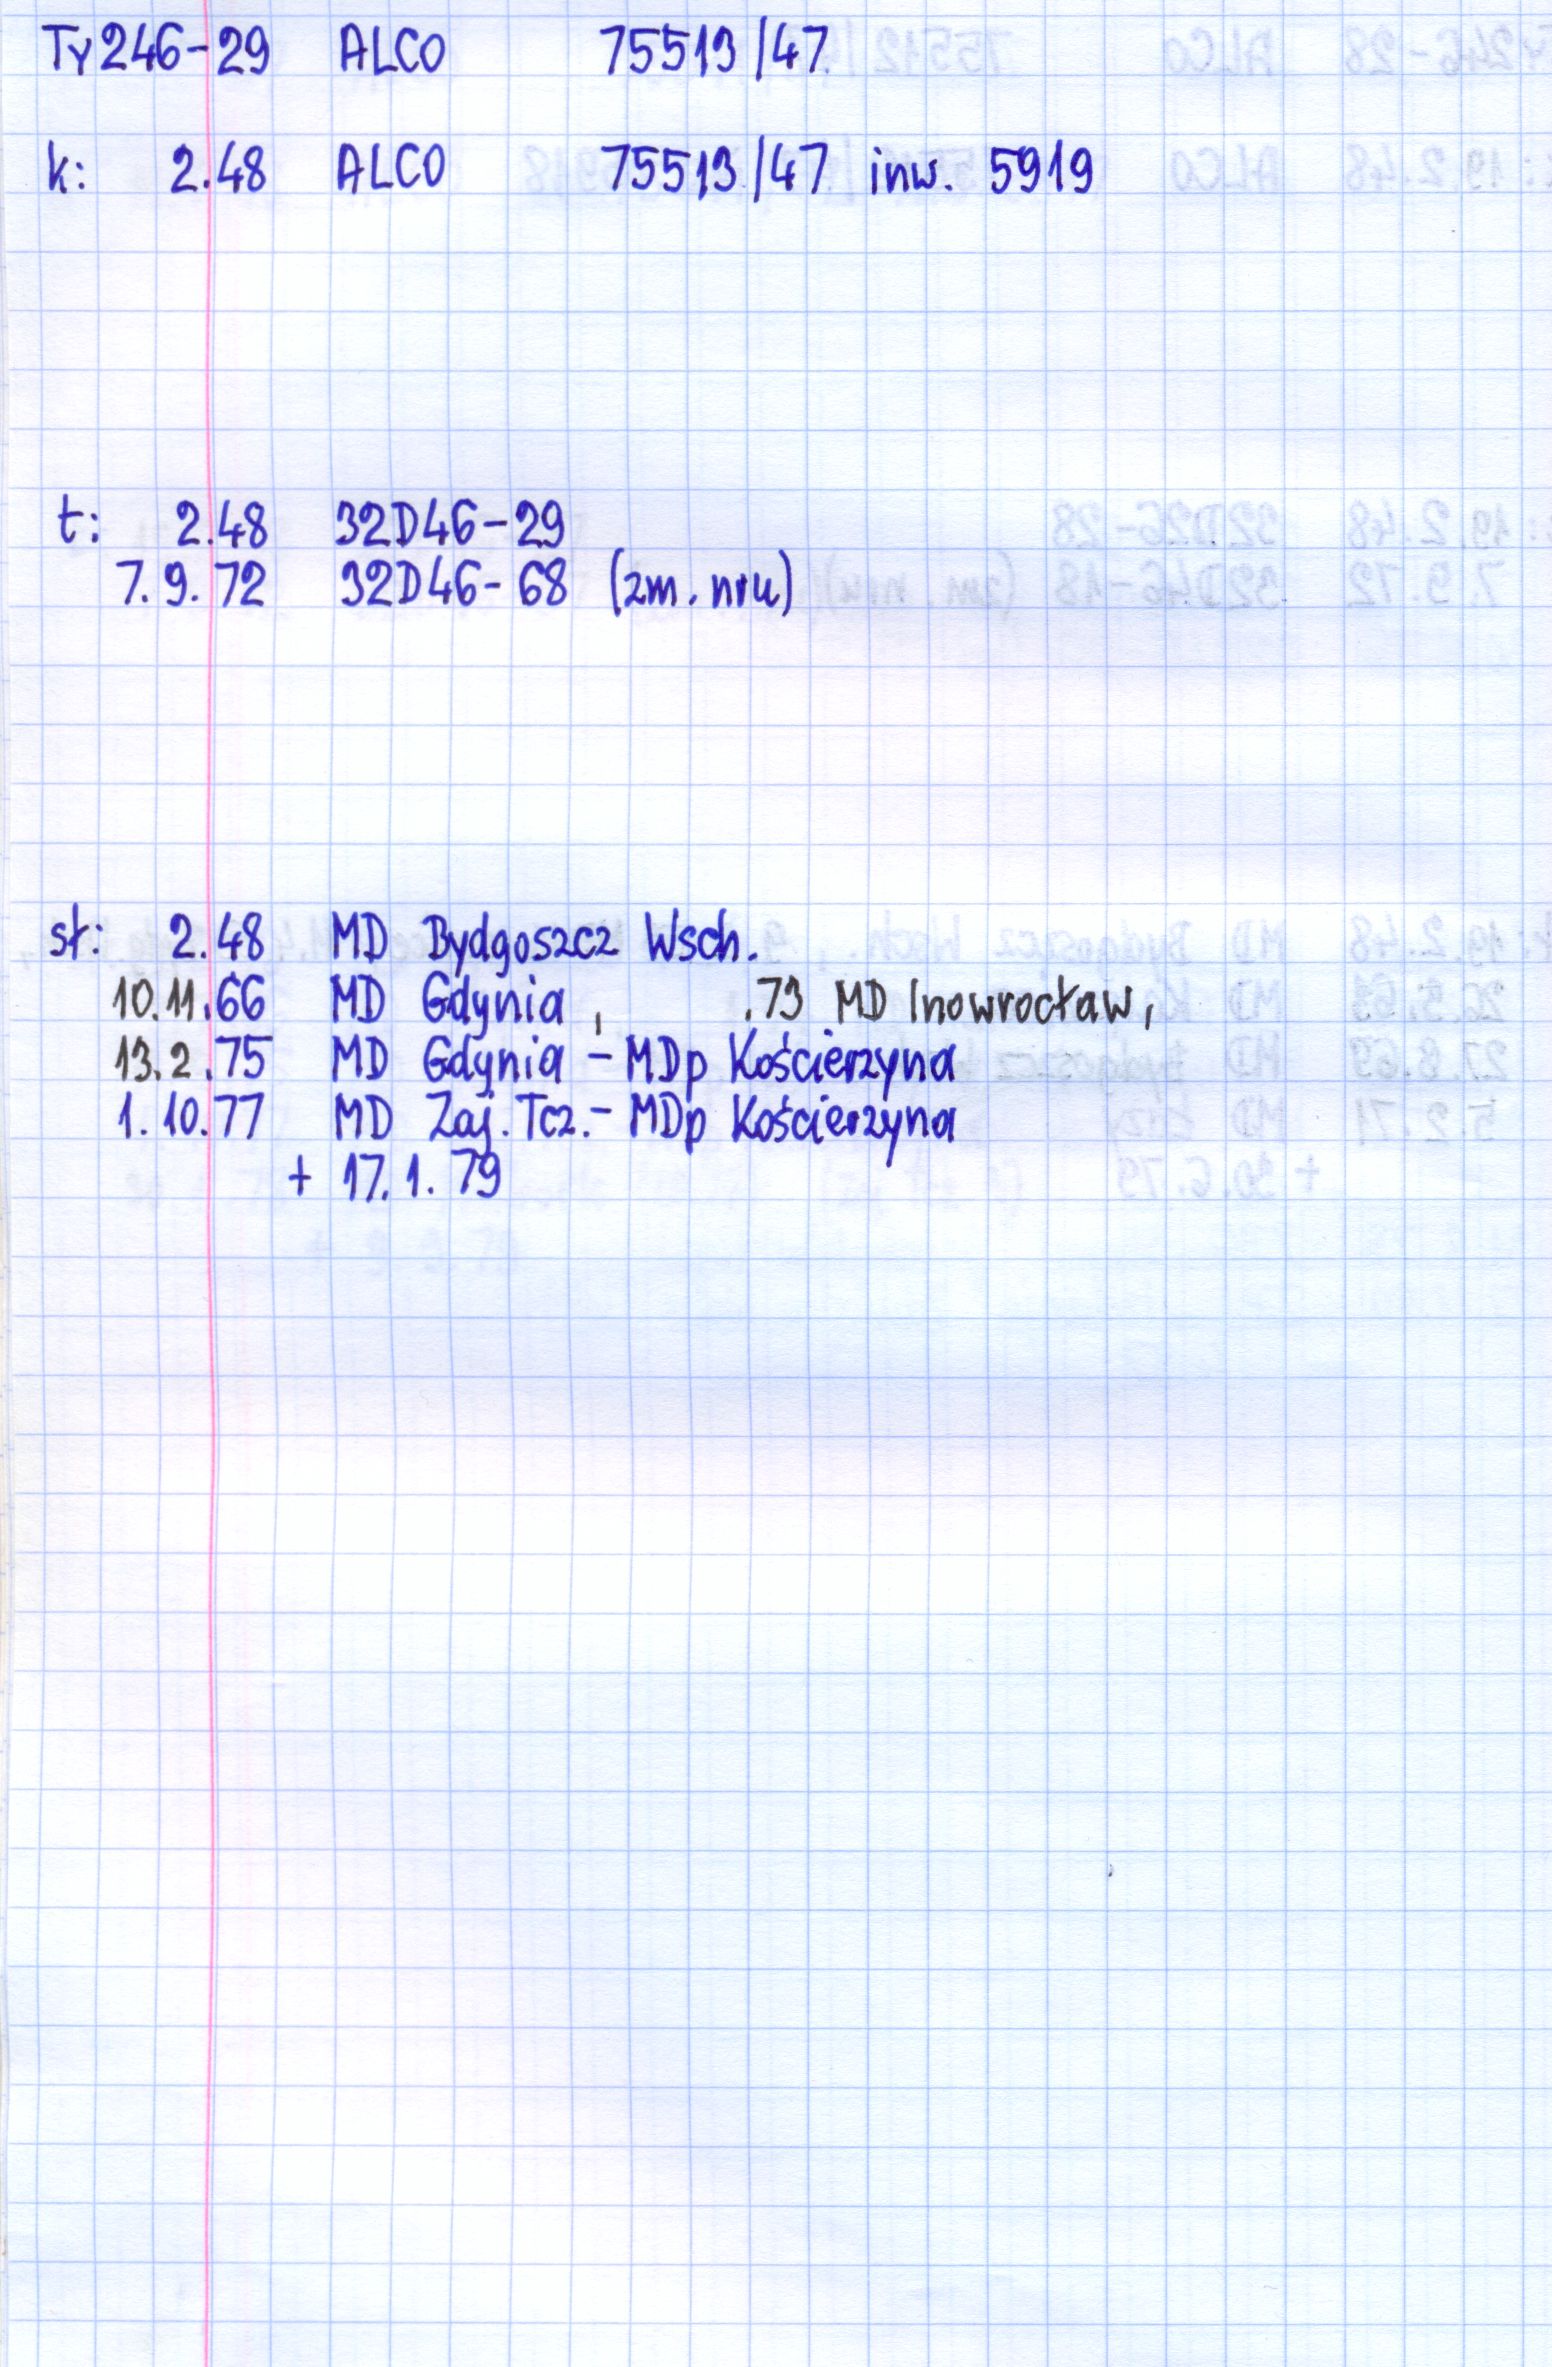 Ty246-29 ALCO 75513/47
k: 2.48 ALCO 75513/47 inw. 5919
t: 2.48 32D46-29
7.9.72 32D46-68 (zm. nru)
sł: 2.48 MD Bydgoszcz Wsch.
10.11.66 MD Gdynia, .73 MD Inowrocław,
13.2.75 MD Gdynia - MDp Kościerzyna
1.10.77 MD Zaj. Tcz. - MDp Kościerzyna
+ 17.1.79